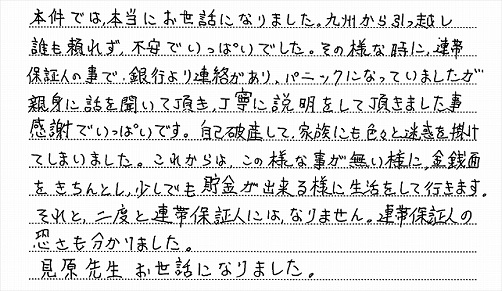 本件では、本当にお世話になりました。九州から引っ越し
誰も頼れず、不安でいっぱいでした。その様な時に、連帯
保証人の事で、銀行より連絡があり、パニックになっていましたが
親身に話を聞いて頂き、丁寧に説明をして頂きました事
感謝でいっぱいです。自己破産して、家族にも色々と迷惑を掛け
てしまいました。これからは、この様な事が無い様に、金銭面
をきちんとし、少しでも貯金が出来る様に生活をして行きます。
それと、二度と連帯保証人には、なりません。連帯保証人の
恐さも分かりました。
見原先生 お世話になりました。